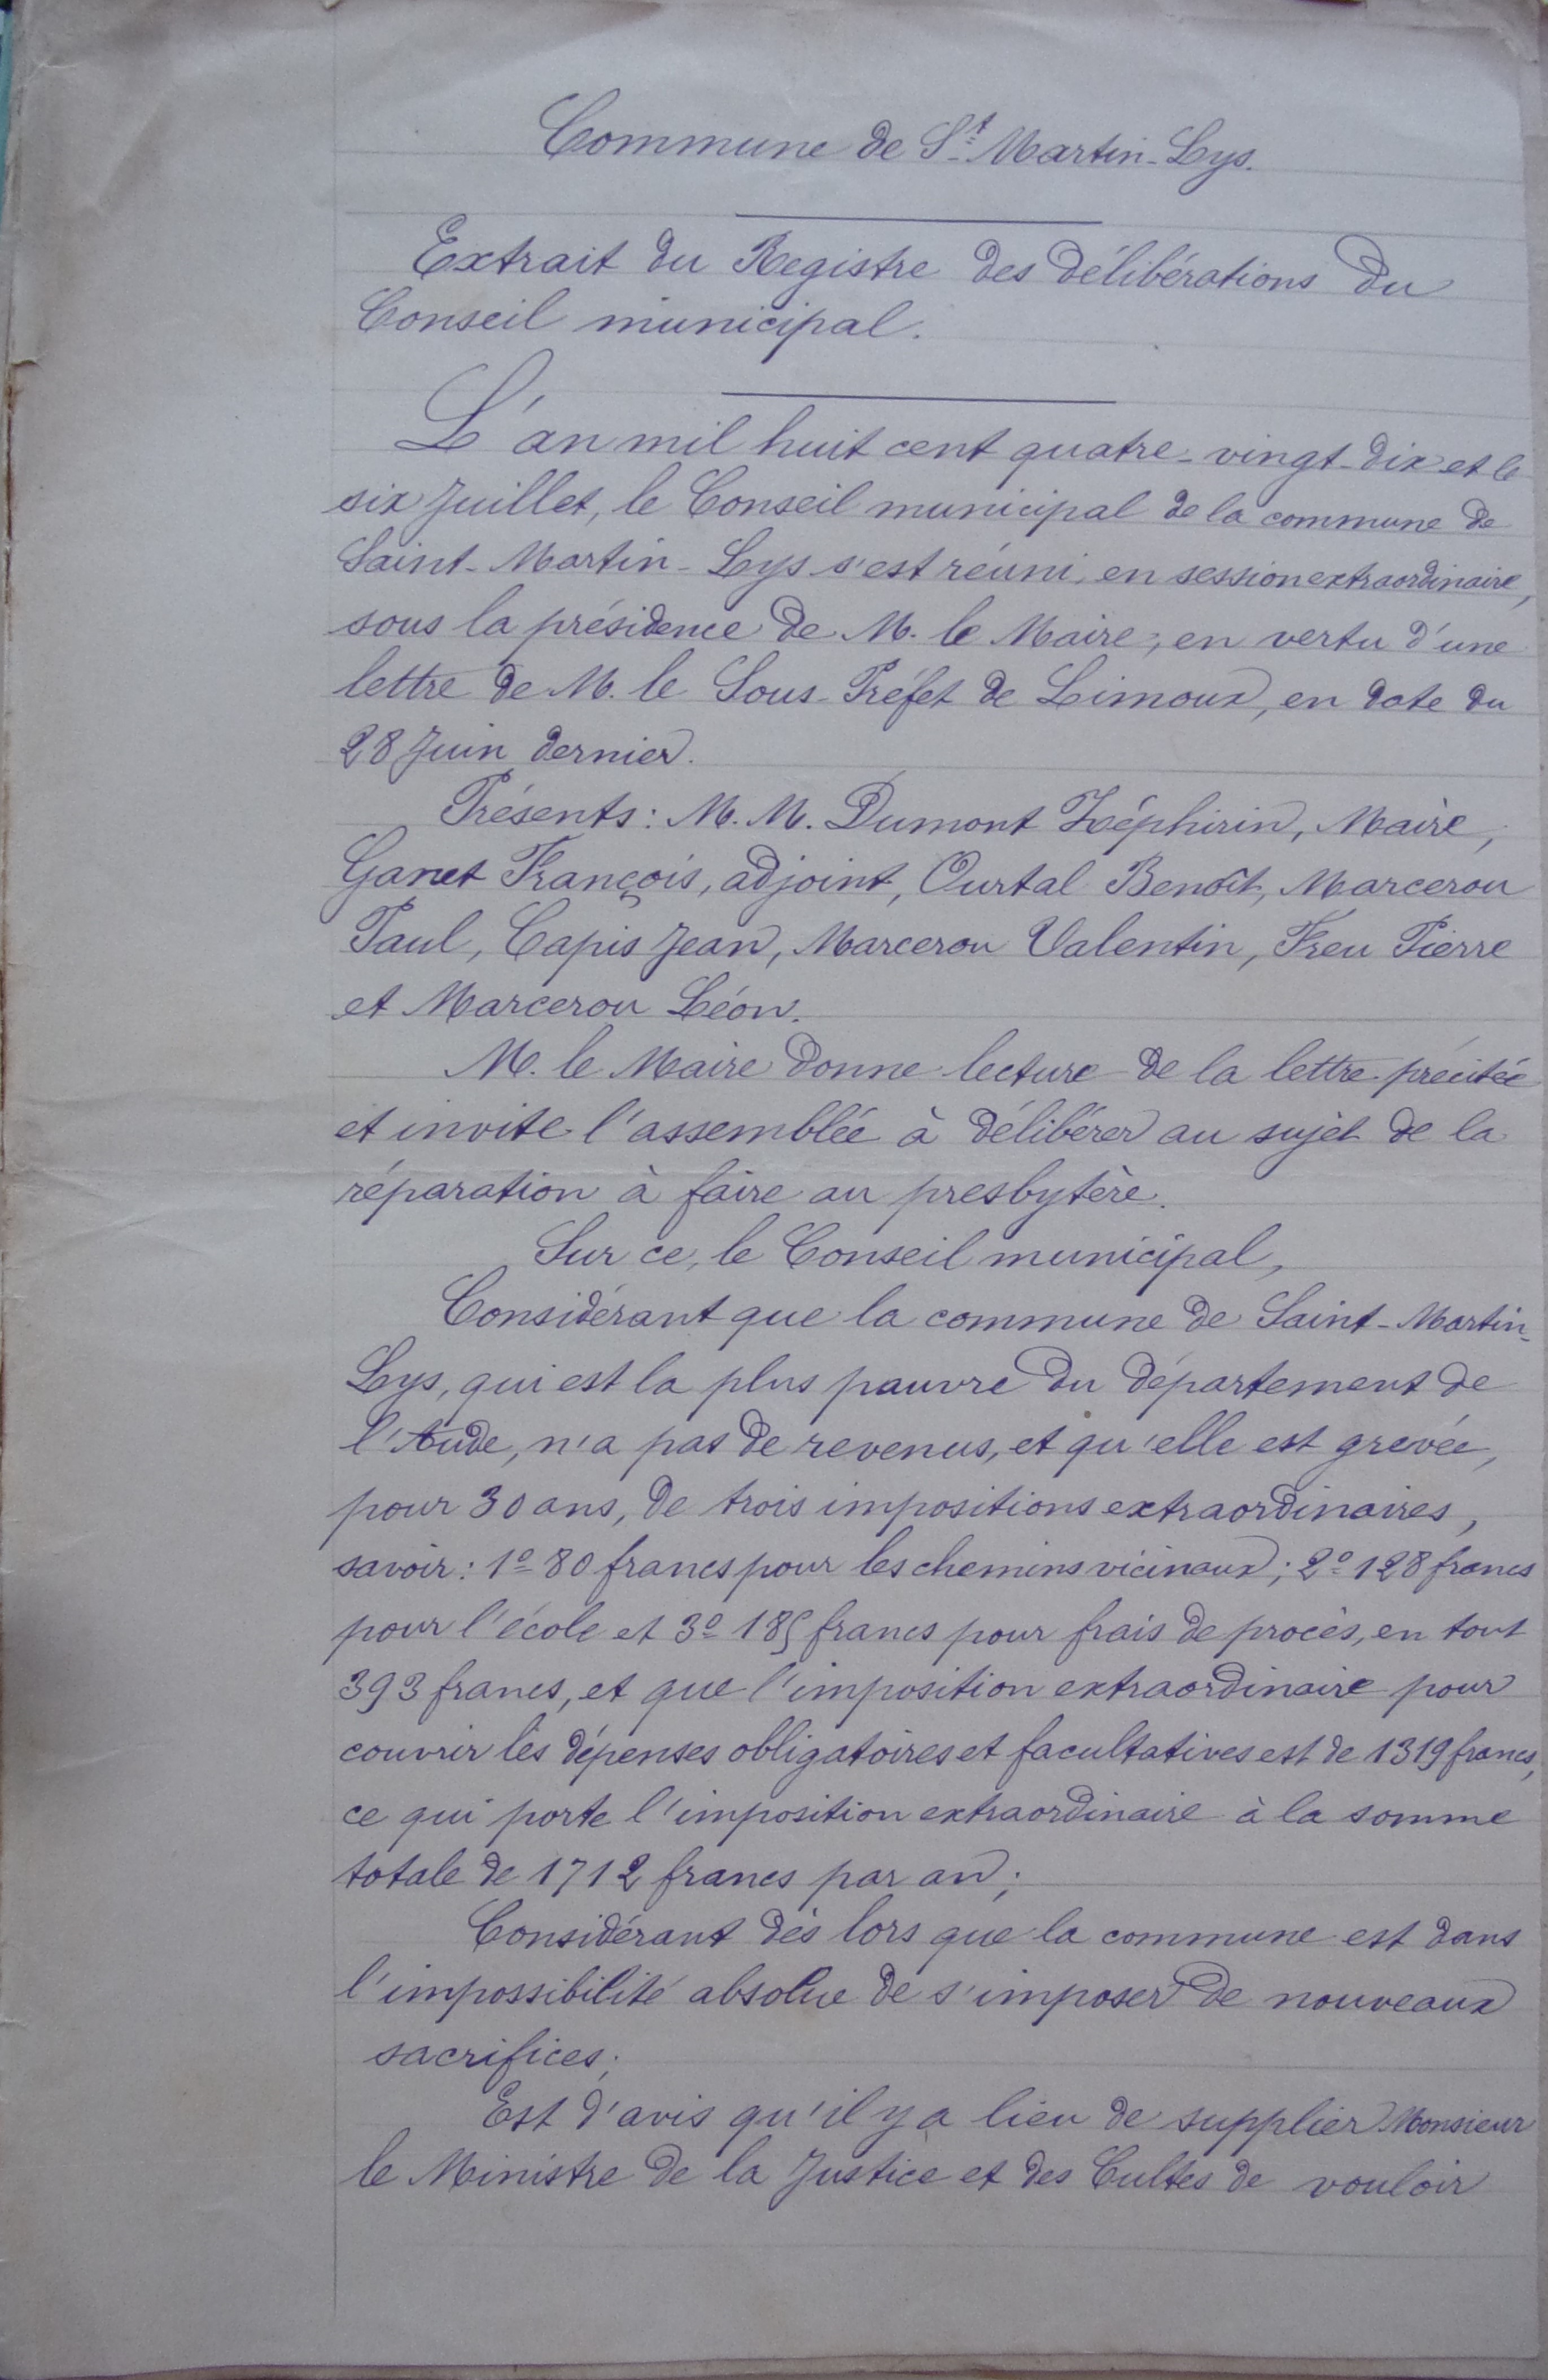 Commune de S.t Martin-Lys.
Extrait du Registre des délibérations du
Conseil municipal.
L'an mil huit cent quatre-vingt-dix et le
six Juillet, le Conseil municipal de la commune de
Saint-Martin-Lys s'est réuni, en session extraordinaire,
sous la présidence de M. le Maire, en vertu d'une
lettre de M. le Sous-Préfet de Limoux, en date du
28 Juin dernier.
Présents: M.M. Dumont Zéphirin, Maire,
Ganet François, adjoint, Ourtal Benoît, Marcerou
Paul, Capis Jean, Marcerou Valentin, Freu Pierre
et Marcerou Léon.
M. le Maire donne lecture de la lettre précitée
et invite l'assemblée à délibérer au sujet de la
réparation à faire au presbytère.
Sur ce, le Conseil municipal,
Considérant que la commune de Saint-Martin-
Lys, qui est la plus pauvre du département de
l'Aude, n'a pas de revenus, et qu'elle est grevée,
pour 30 ans, de trois impositions extraordinaires,
savoir: 1º 80 francs pour les chemins vicinaux; 2º 128 francs
pour l'école et 3º 185 francs pour frais de procès, en tout
393 francs, et que l'imposition extraordinaire pour
couvrir les dépenses obligatoires et facultatives est de 1319 francs,
ce qui porte l'imposition extraordinaire à la somme
totale de 1712 francs par an;
Considérant dès lors que la commune est dans
l'impossibilité absolue de s'imposer de nouveaux
sacrifices;
Est d'avis qu'il y a lieu de supplier Monsieur
le Ministre de la Justice et des Cultes de vouloir